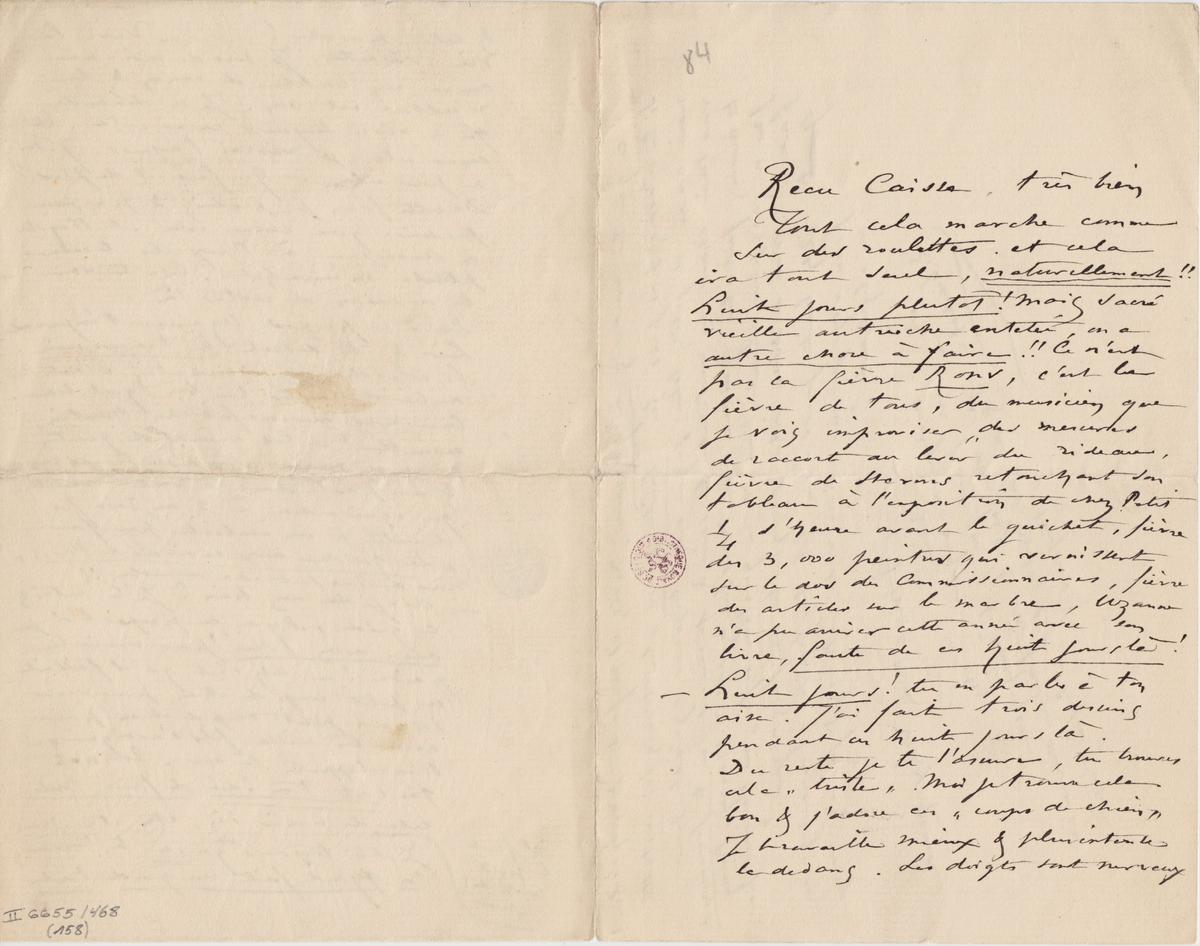 84
Reçu Caisse. très bien
Tout cela marche comme
sur des roulettes. et cela
ira tout seul, naturellement!!
Huit jours plutot! Mais sacré
vieille autruche entetée, on a
autre chose à faire!! Ce n'est
pas la fièvre Rops, c'est la
fièvre de tous, du musicien que
je vois improviser des mesures
de raccort au lever du rideau,
fièvre de Stevens retouchant son
tableau à l'exposition de chez Petit
1/4 d'heure avant le guichet, fièvre
des 3,000 peintres qui vernissent
sur le dos des Commissionnaires, fièvre
des articles sur le marbre, Uzanne
n'a pu arriver cette année avec son
livre, faute de ces huit jours là!
— Huit jours! tu en parles à ton
aise. J'ai fait trois dessins
pendant ces huit jours là.
Du reste je te l'assure, tu trouves
cela „ triste „. Moi je trouve cela
bon & j'adore ces „ coups de chien „
Je travaille mieux & plus intente
le dedans. Les doigts sont nerveux
II 6655/468
(158)